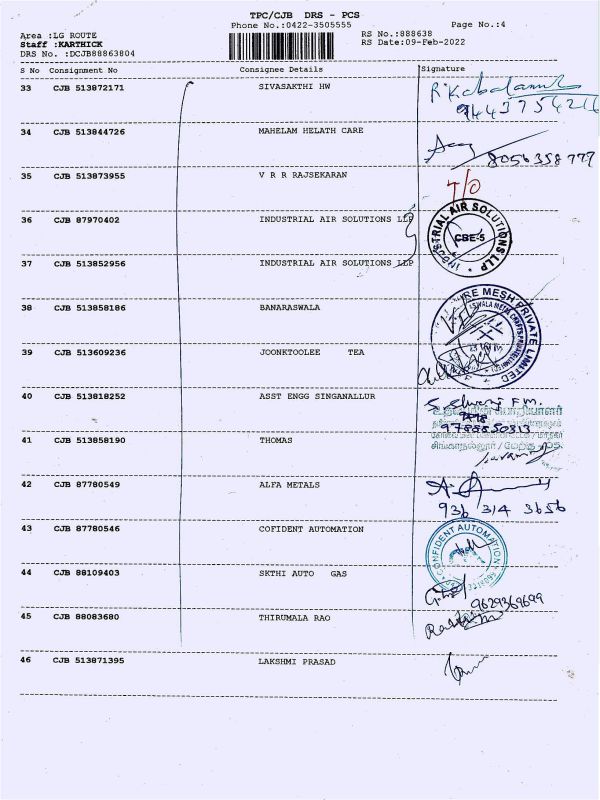 TPC/CJB DRS - PCS
Phone No.:0422-3505555
Page No.:4
Area :LG ROUTE
RS No.:888638
Staff :KARTHICK
RS Date:09-Feb-2022
DRS No. :DCJB88863804
S No Consignment No Consignee Details Signature
33 CJB 513872171 SIVASAKTHI HW
9443754216
34 CJB 513844726 MAHELAM HELATH CARE
8056358779
35 CJB 513873955 V R R RAJSEKARAN
T/O
36 CJB 87970402 INDUSTRIAL AIR SOLUTIONS LLP
INDUSTRIAL AIR SOLUTIONS LLP
CBE-5
37 CJB 513852956 INDUSTRIAL AIR SOLUTIONS LLP
38 CJB 513858186 BANARASWALA
RE MESH PRIVATE LIMITED
39 CJB 513609236 JCONKTOOLEE TEA
40 CJB 513818252 ASST ENGG SINGANALLUR
9788850313
41 CJB 513858190 THOMAS
42 CJB 87780549 ALFA METALS
936 314 3656
43 CJB 87780546 COFIDENT AUTOMATION
CONFIDENT AUTOMATION
44 CJB 88109403 SKTHI AUTO GAS
9629369699
45 CJB 88083680 THIRUMALA RAO
46 CJB 513871395 LAKSHMI PRASAD